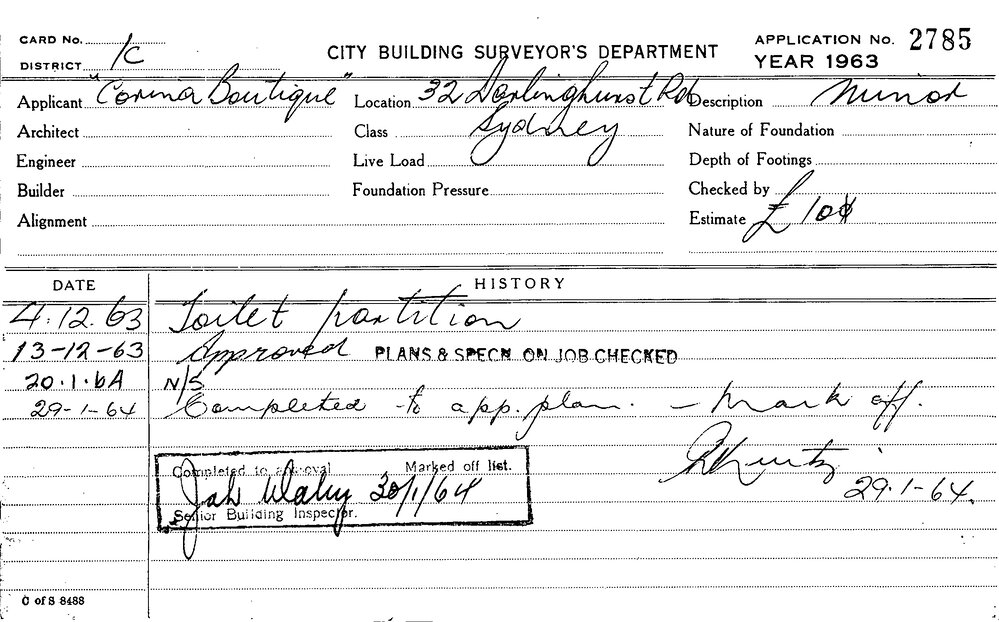 CARD No. 1C
DISTRICT
CITY BUILDING SURVEYOR'S DEPARTMENT
APPLICATION No. 2785
YEAR 1963
Applicant "Corina Boutique"
Location 32 Darlinghurst Rd
Sydney
Description Minor
Architect
Class
Nature of Foundation
Engineer
Live Load
Depth of Footings
Builder
Foundation Pressure
Checked by
Alignment
Estimate £100
DATE HISTORY
4.12.63 Toilet partition
13-12-63 Approved PLANS & SPECN. ON JOB CHECKED
20.1.64 N/S
29-1-64 Completed to app. plan. – Mark off.
29.1-64.
Completed to approval Marked off list.
30/1/64
Senior Building Inspector.
C of S 8488